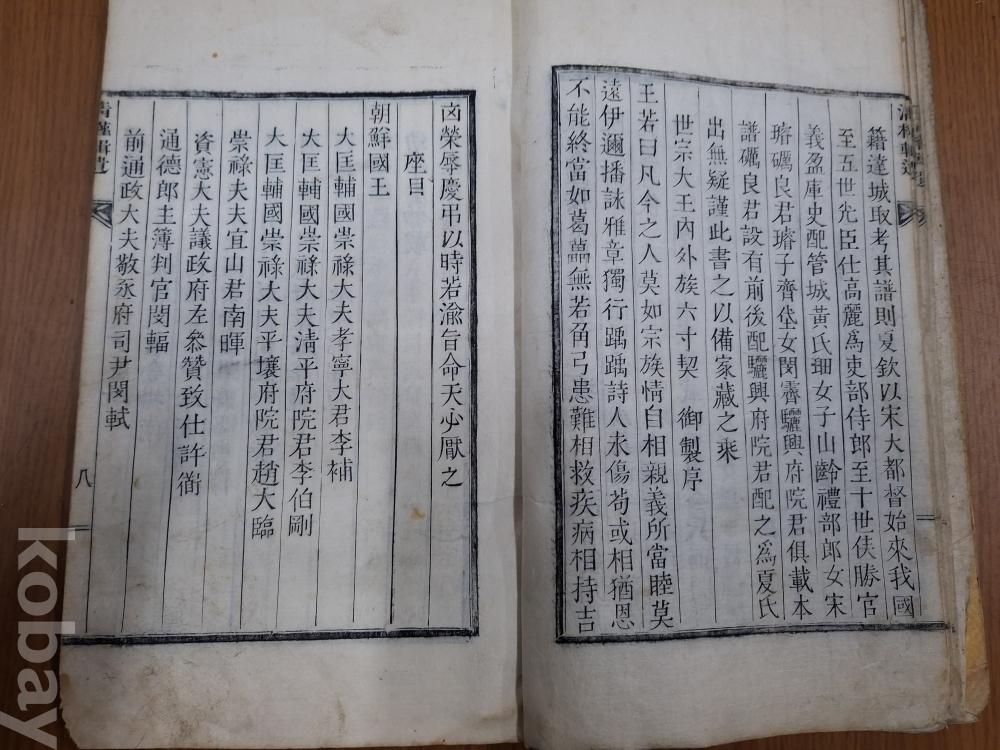 籍達城取考其譜則夏欽以宋大都督始來我國
至五世光臣仕高麗爲吏部侍郎至十世侠勝官
義盈庫史配管城黃氏珊女子山齡禮部郎女宋
瑃礪良君瑃子齊垈女閔霽驪興府院君俱載本
譜礪良君設有前後配驪興府院君配之爲夏氏
出無疑謹此書之以備家藏之乘
世宗大王內外族六寸契 御製序
王若曰凡今之人莫如宗族情自相親義所當睦莫
遠伊邇播詠雅章獨行踽踽詩人永傷苟或相猶恩
不能終當如葛藟無若角弓患難相救疾病相持吉
凶榮辱慶弔以時若渝旨命天必厭之
座目
朝鮮國王
大匡輔國崇祿大夫孝寧大君李補
大匡輔國崇祿大夫淸平府院君李伯剛
大匡輔國崇祿大夫平壤府院君趙大臨
崇祿大夫宜山君南暉
資憲大夫議政府左參贊致仕許衜
通德郎主簿判官閔輻
前通政大夫敬承府司尹閔軾
八
kobay